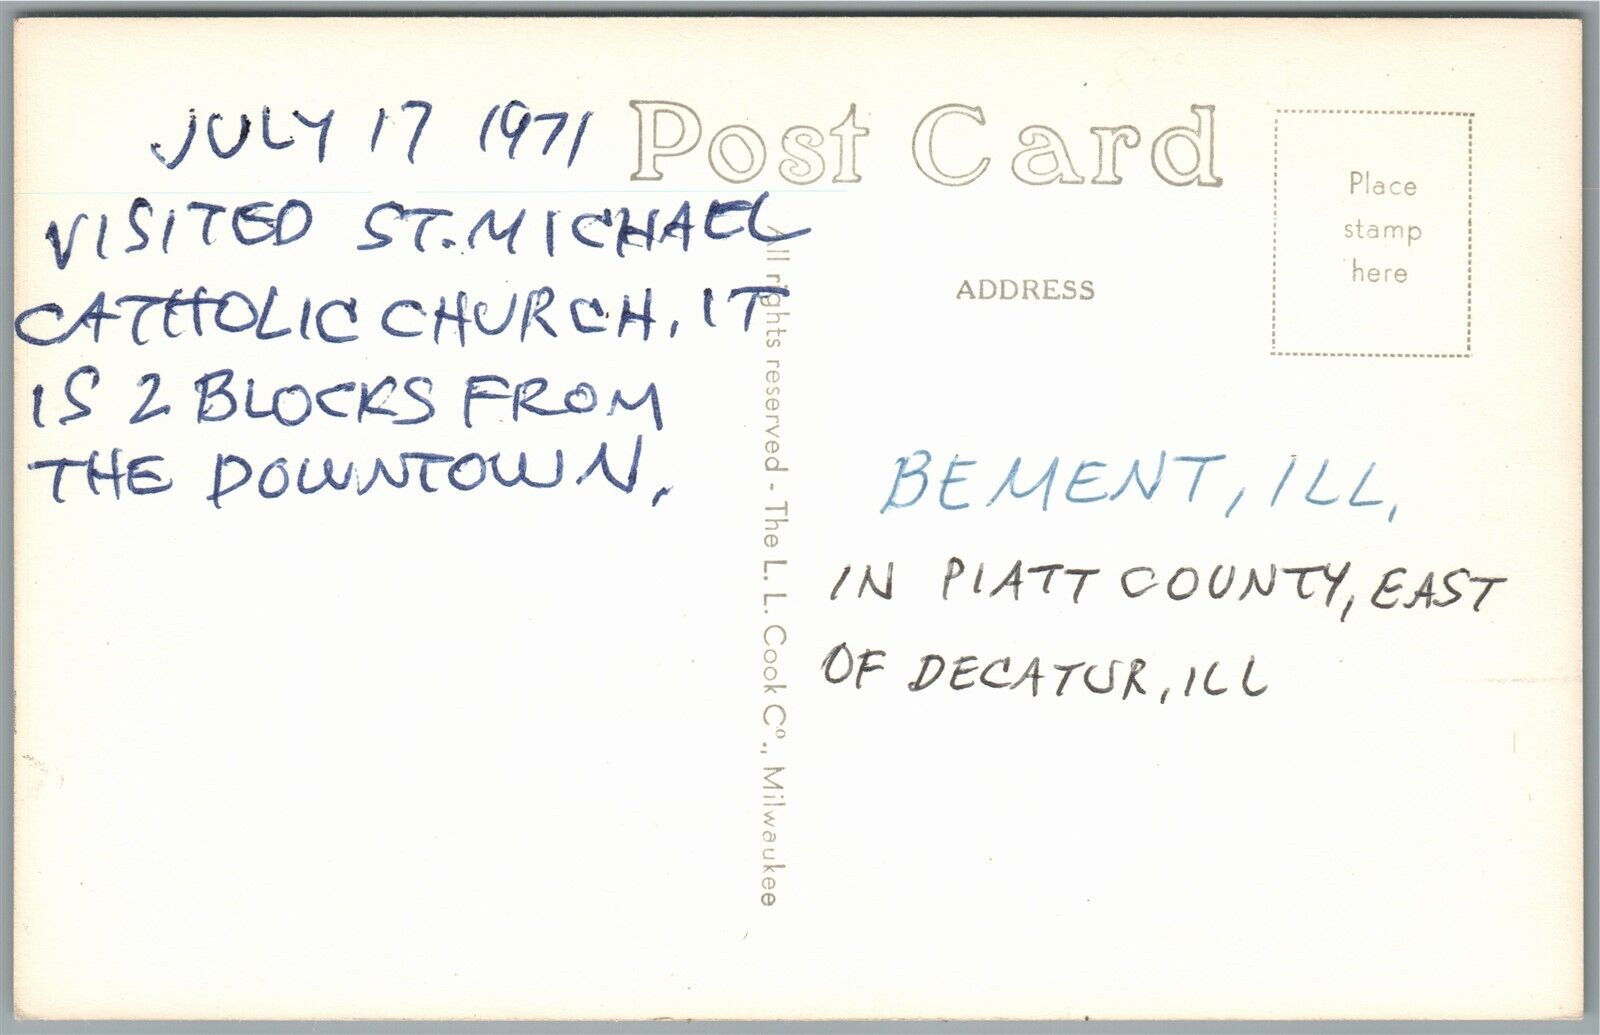 JULY 17 1971
VISITED ST. MICHAEL
CATHOLIC CHURCH. IT
IS 2 BLOCKS FROM
THE DOWNTOWN.
Post Card
Place
stamp
here
ADDRESS
BEMENT, ILL.
IN PIATT COUNTY, EAST
OF DECATUR, ILL
All rights reserved - The L. L. Cook Co., Milwaukee